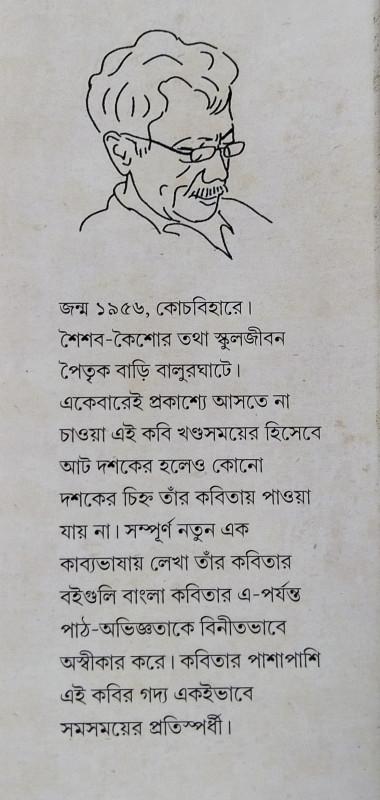 জন্ম ১৯৫৬, কোচবিহারে।
শৈশব-কৈশোর তথা স্কুলজীবন
পৈতৃক বাড়ি বালুরঘাটে।
একেবারেই প্রকাশ্যে আসতে না
চাওয়া এই কবি খণ্ডসময়ের হিসেবে
আট দশকের হলেও কোনো
দশকের চিহ্ন তাঁর কবিতায় পাওয়া
যায় না। সম্পূর্ণ নতুন এক
কাব্যভাষায় লেখা তাঁর কবিতার
বইগুলি বাংলা কবিতার এ-পর্যন্ত
পাঠ-অভিজ্ঞতাকে বিনীতভাবে
অস্বীকার করে। কবিতার পাশাপাশি
এই কবির গদ্য একইভাবে
সমসময়ের প্রতিস্পর্ধী।